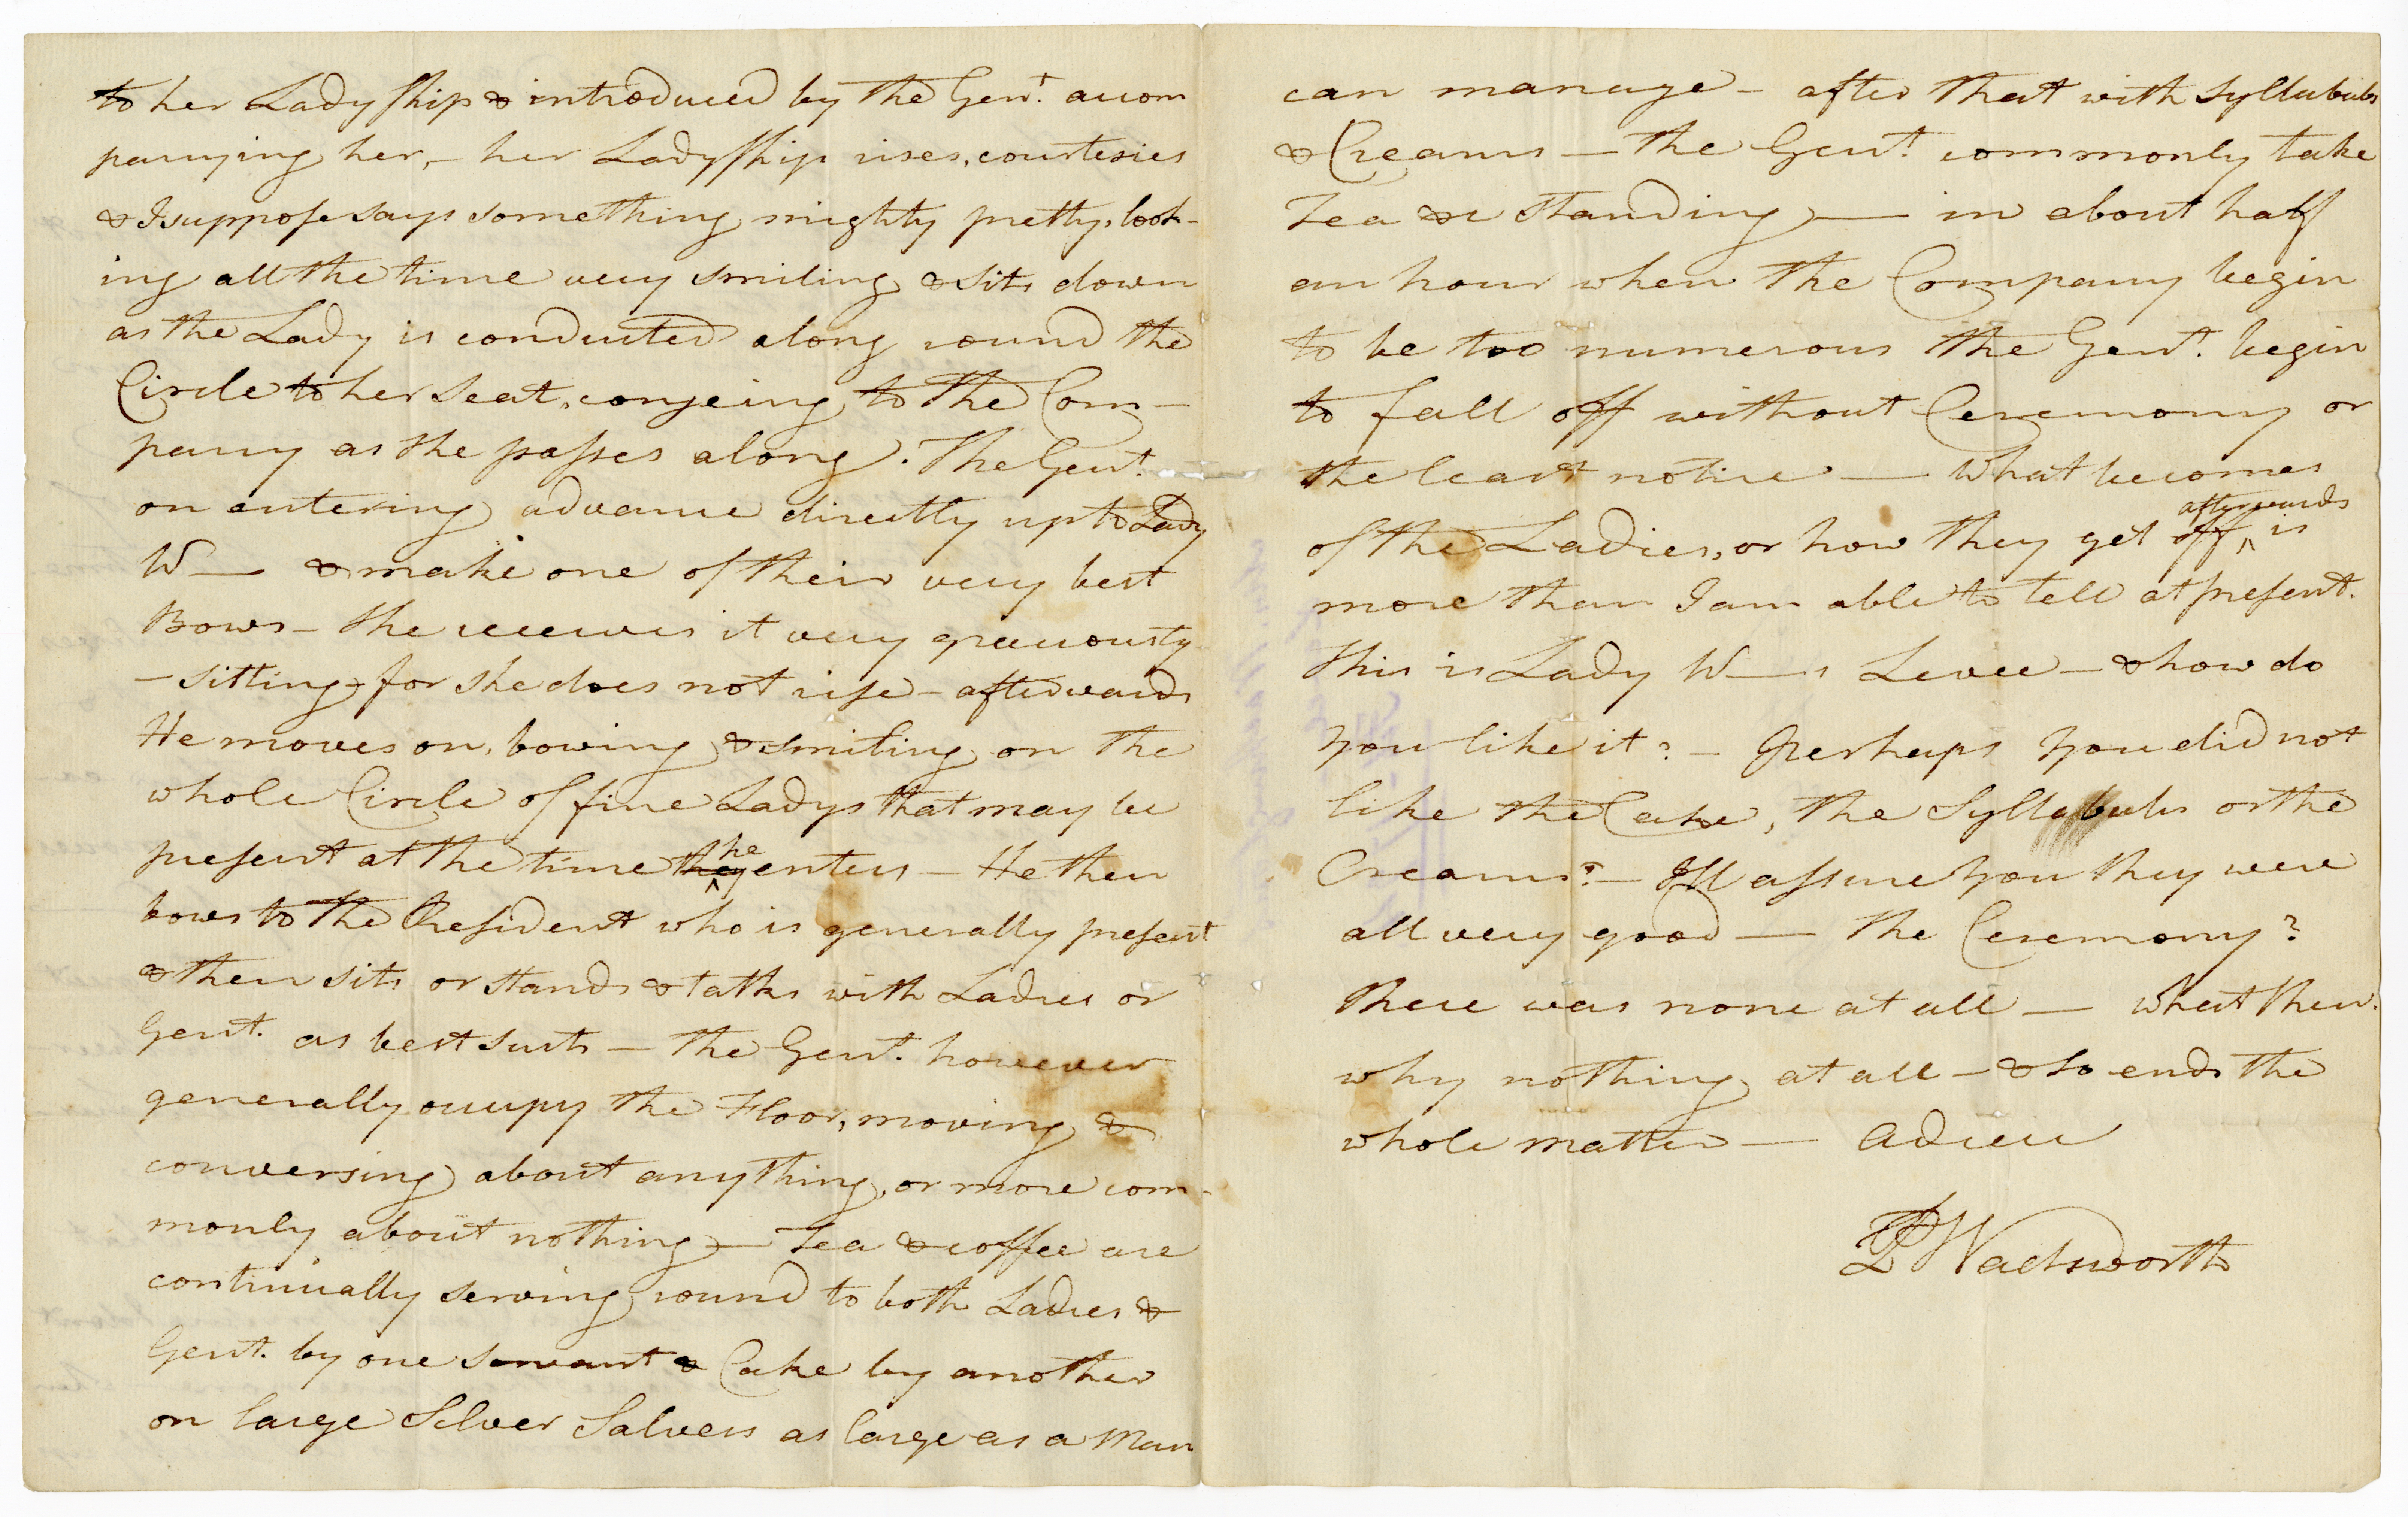 to her Ladyship & introduced by the Gent. accom
panying her, – her Ladyship rises, courtesies
& I suppose says something mighty pretty, look-
ing all the time very smiling & sits down
as the Lady is conducted along round the
Circle to her Seat, congeing to the Com-
pany as she passes along. The Gent.
on entering advance directly up to Lady
W— & make one of their very best
Bows – she receives it very graciously
– sitting – for she does not rise – afterwards
He moves on, bowing & smiling on the
whole Circle of fine Ladys that may be
present at the time they he enters – He then
bows to the President who is generally present
& then sits or stands & talks with Ladies or
Gent. as best suits – the Gent. however
generally occupy the Floor, moving &
conversing about anything, or more com-
monly about nothing – Tea & coffee are
continually serving round to both Ladies &
Gent. by one servant & Cake by another
on large Silver Salvers as large as a Man
can manage – after that with Syllabubs
& Creams – the Gent. commonly take
Tea &c standing — in about half
an hour when the Company begin
to be too numerous the Gent. begin
to fall off without Ceremony or
the least notice — What becomes
of the Ladies, or how they get off afterwards is
more than I am able to tell at present.
This is Lady W—s Levee – & how do
you like it? – Perhaps you did not
like the Cake, the Syllabubs or the
Creams? – I'll assure you they were
all very good — the Ceremony?
there was none at all — what then.
why nothing at all – & so ends the
whole matter — Adieu
P Wadsworth